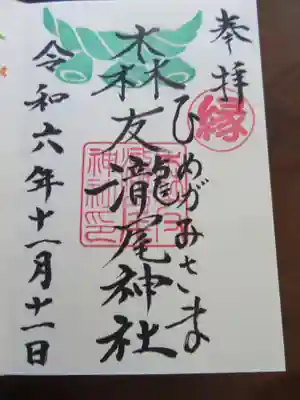 奉拝
縁
ひめがみさま
森友瀧尾神社
神社印
令和六年十一月十一日